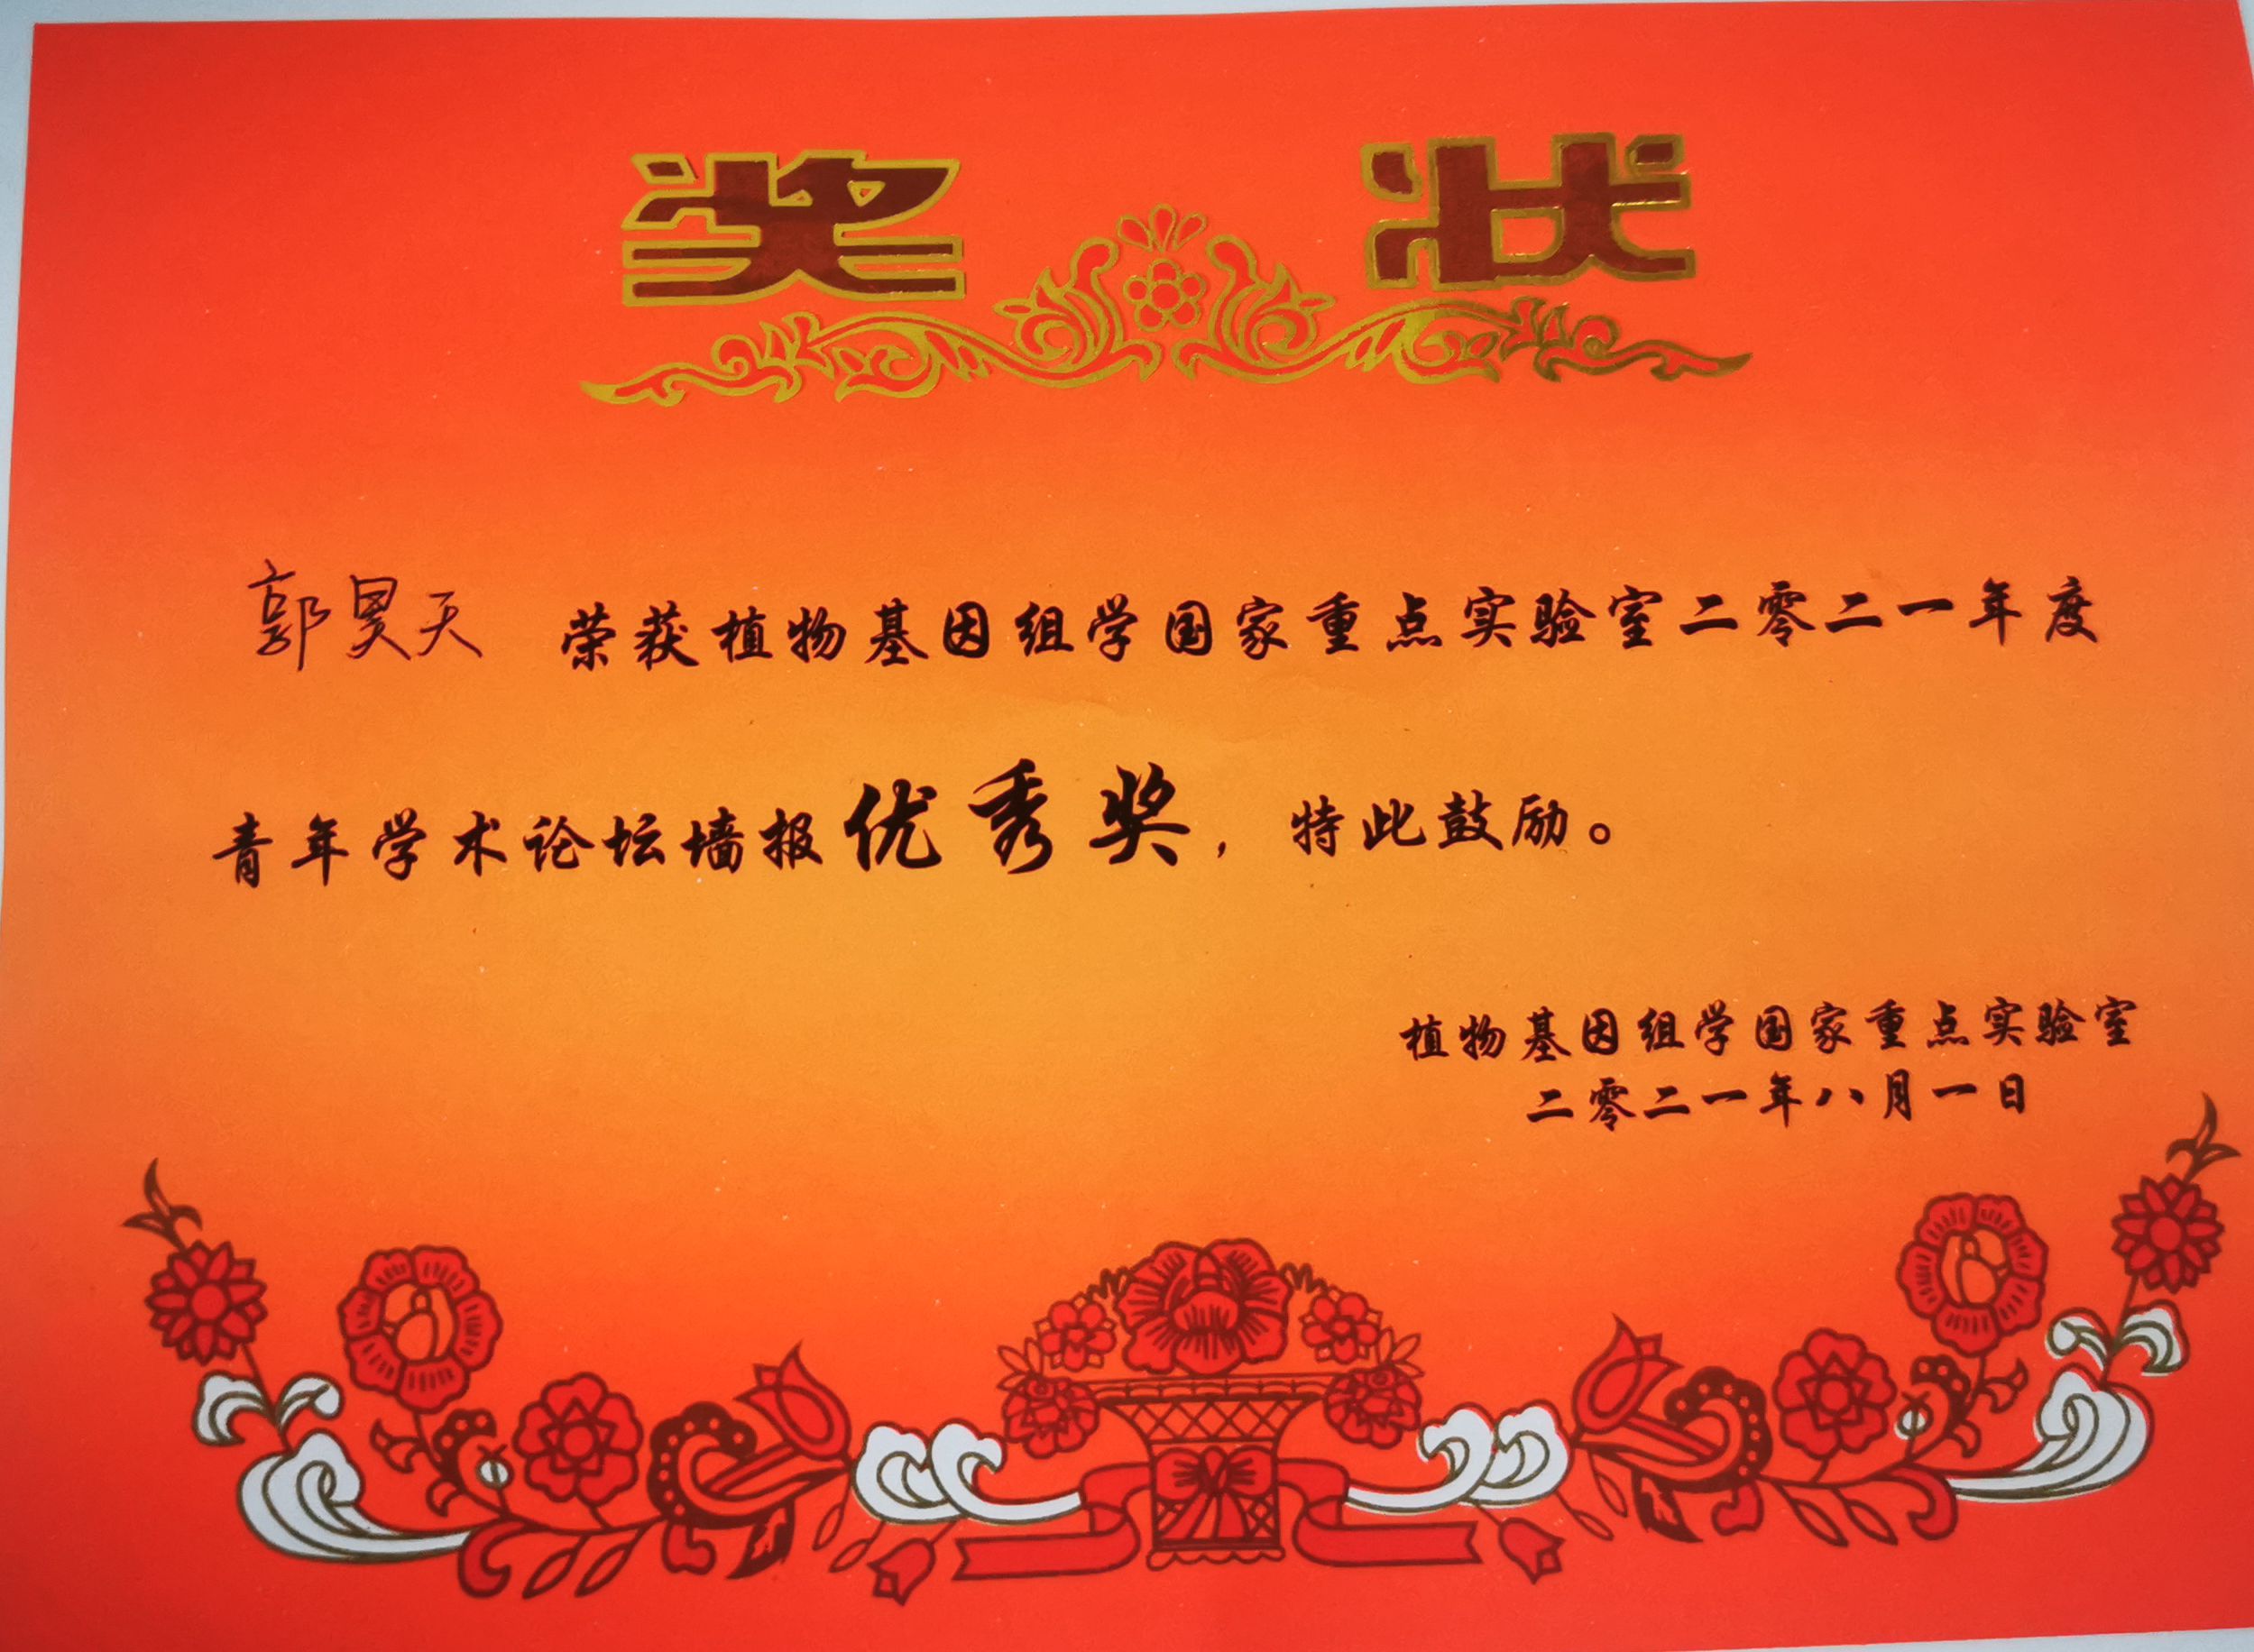 奖状
郭昊天 荣获植物基因组学国家重点实验室二零二一年度
青年学术论坛墙报优秀奖，特此鼓励。
植物基因组学国家重点实验室
二零二一年八月一日